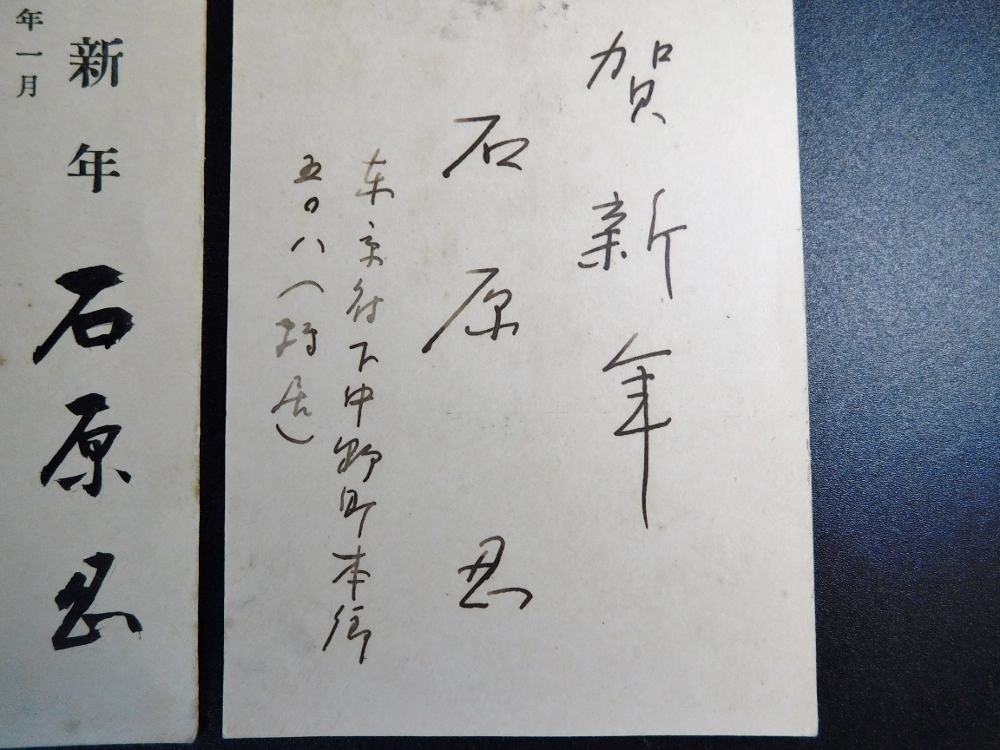 賀新年
石原忍
东京府下中野町本郷
五〇八（轉居）
年一月
新年
石原忍